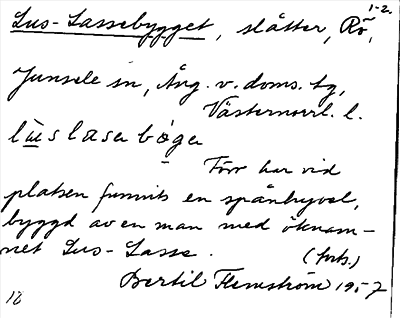 1-2.
Lus-Lassebygget, slåtter, Rö,
Junsele sn, Ång. v. doms. tg,
Västernorrl. l.
lùs lasa bøga
Förr har vid
platsen funnits en spånhyvel,
byggd av en man med öknam-
net Lus-Lasse. (forts.)
Bertil Flemström 1957
18